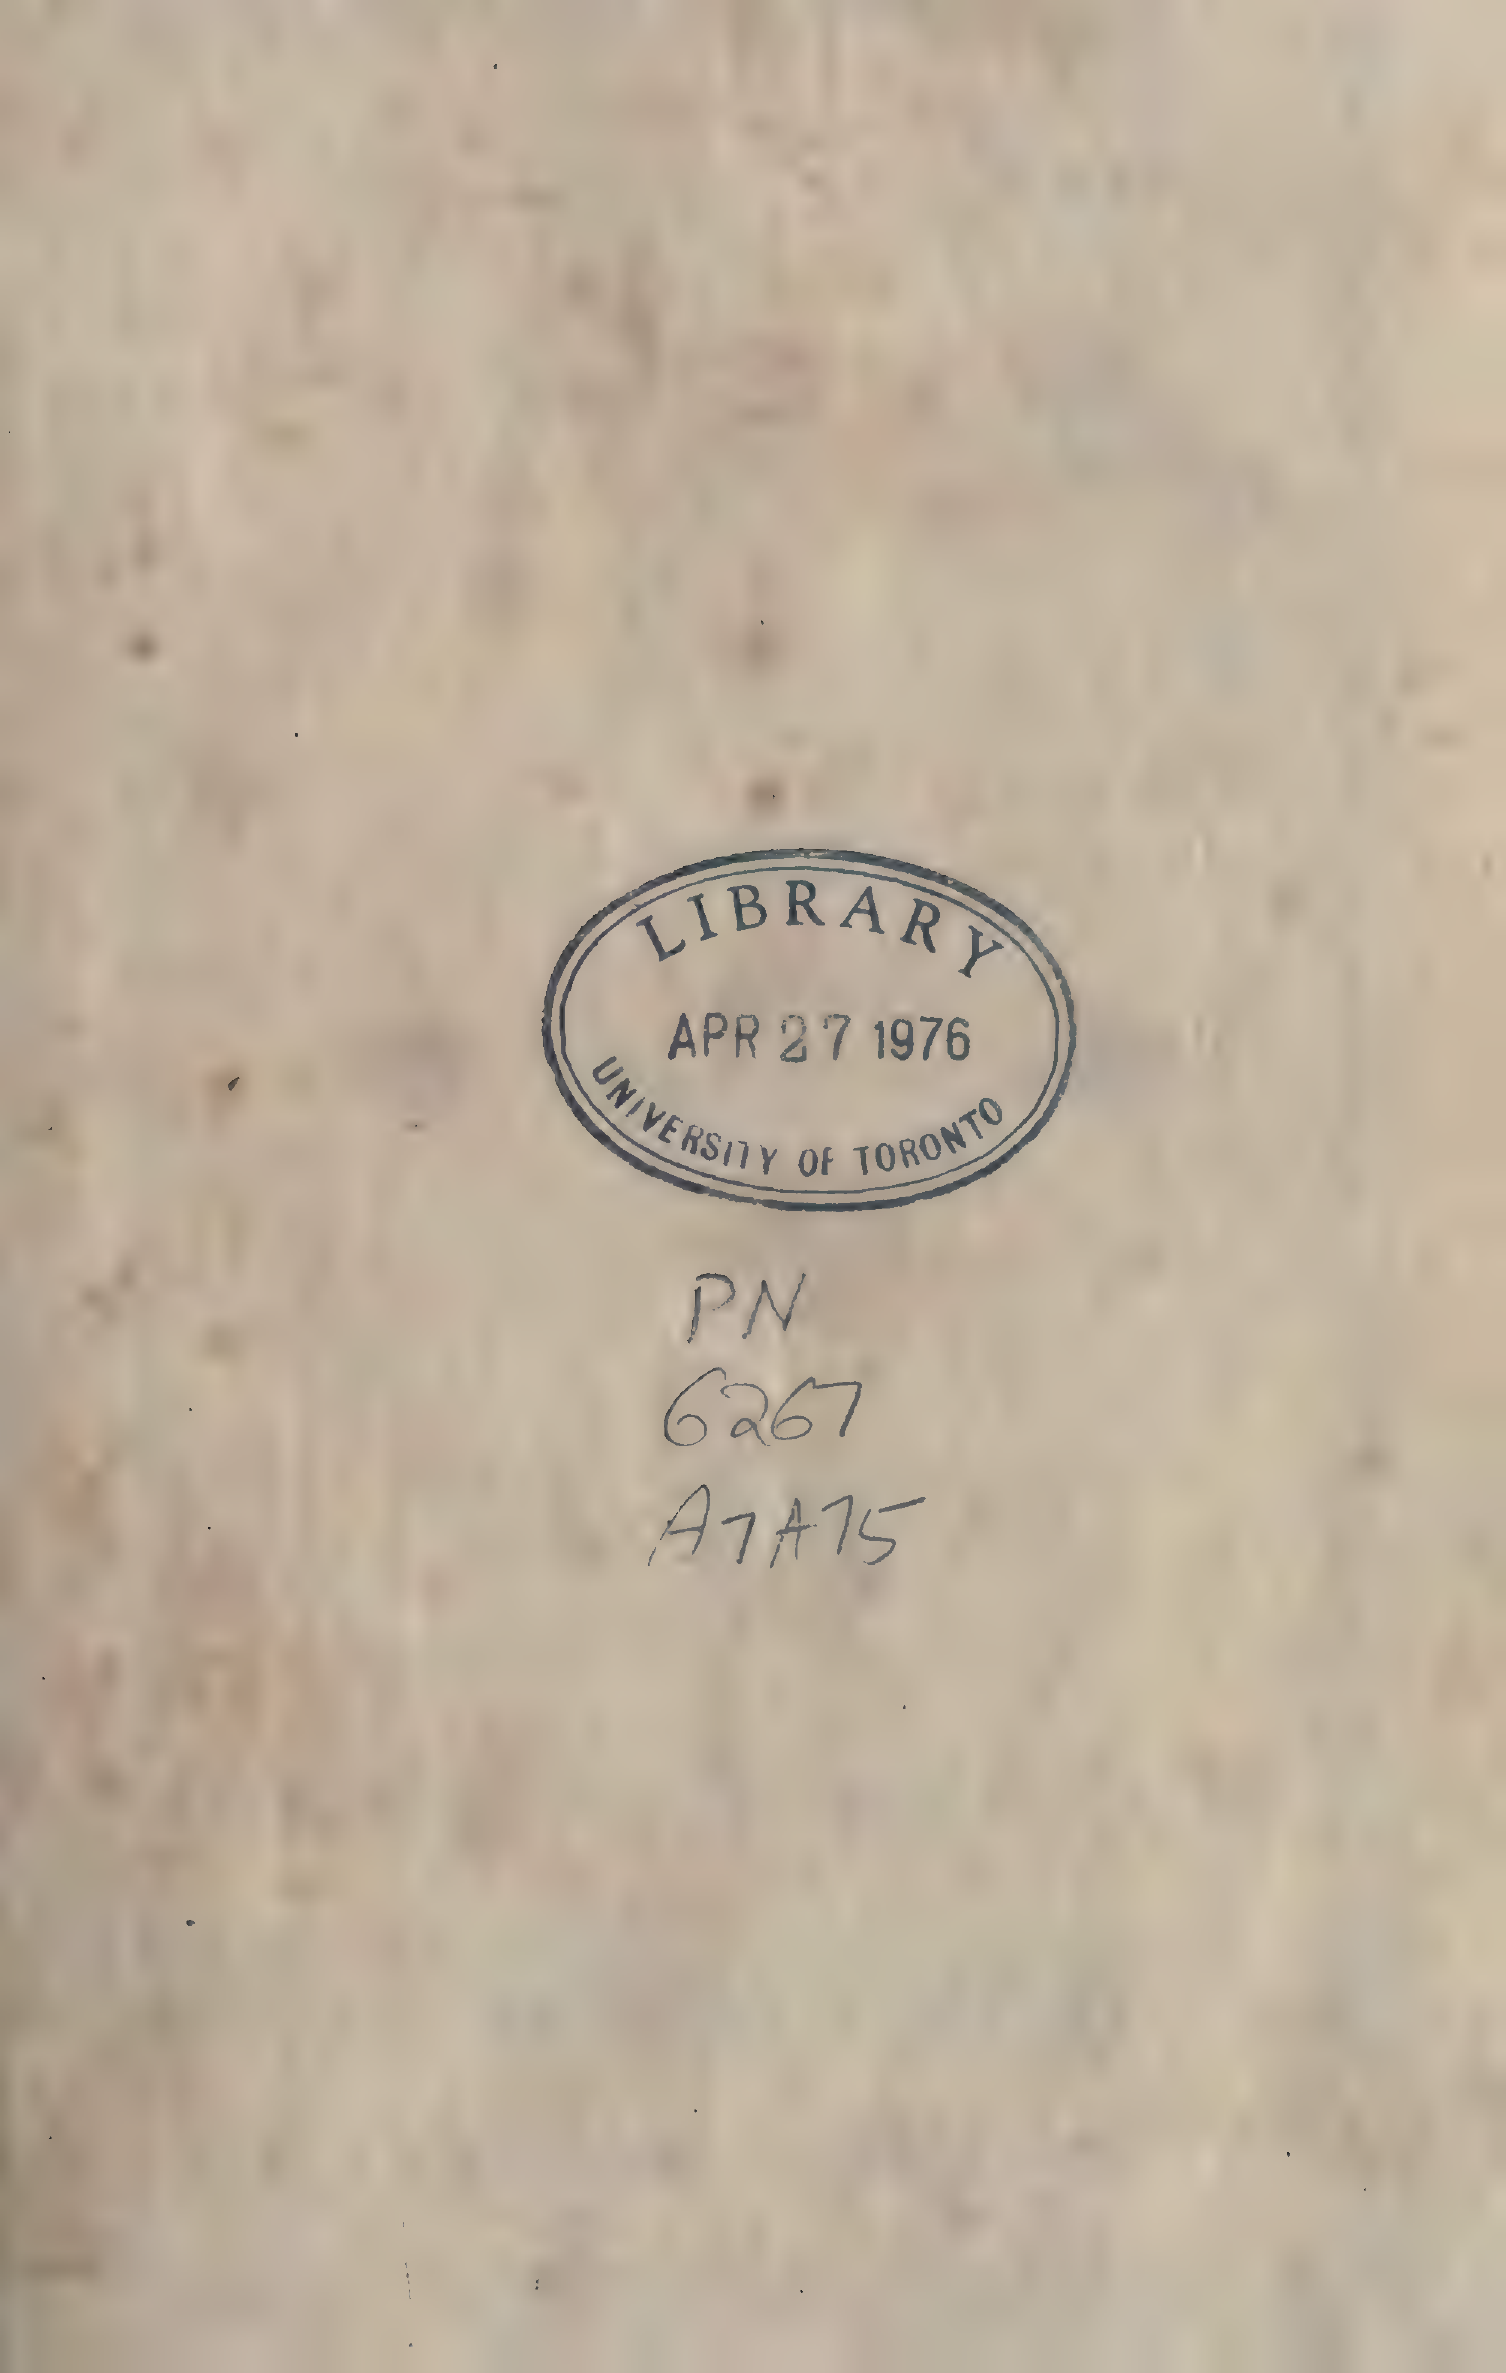 LIBRARY
APR 27 1976
UNIVERSITY OF TORONTO
PN
6267
A7A75